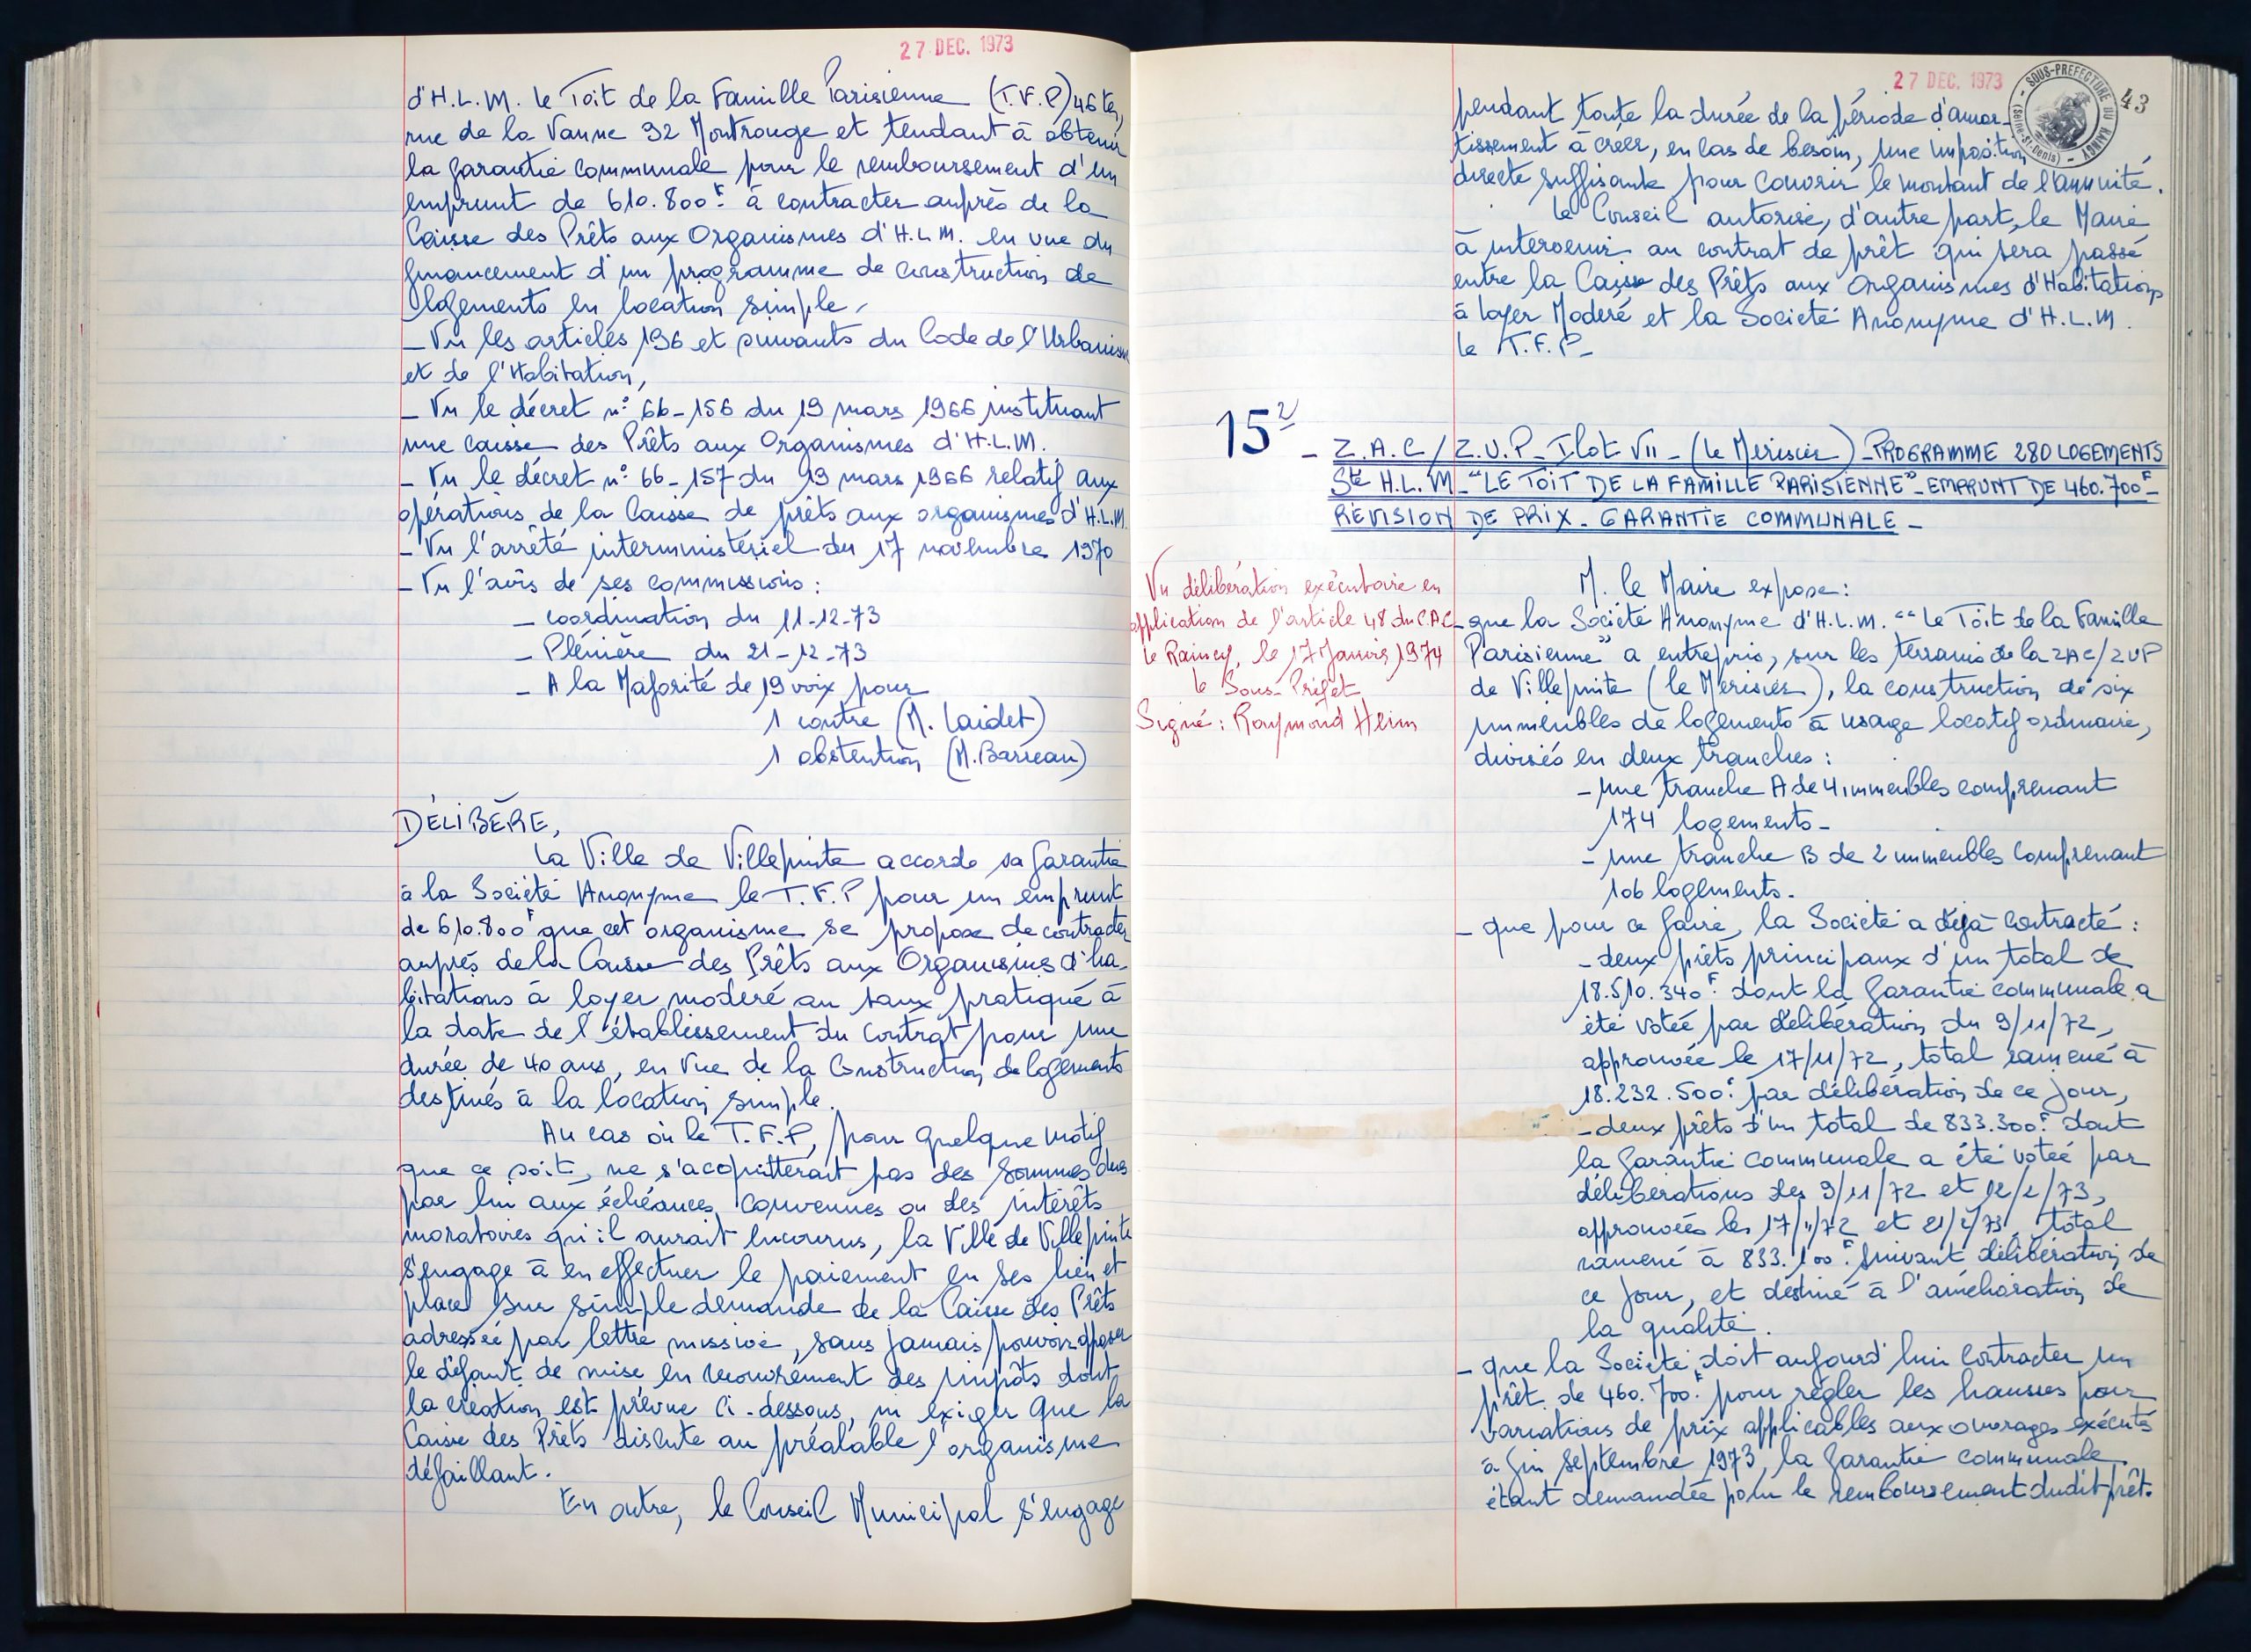 27 DEC. 1973
d'H.L.M. le Toit de la Famille Parisienne (T.F.P) 46 ter,
rue de la Vanne 92 Montrouge et tendant à obtenir
la garantie communale pour le remboursement d'un
emprunt de 610.800F à contracter auprès de la
Caisse des Prêts aux Organismes d'H.L.M. en vue du
financement d'un programme de construction de
logements en location simple,
- Vu les articles 196 et suivants du Code de l'Urbanisme
et de l'Habitation,
- Vu le décret n° 66-156 du 19 mars 1966 instituant
une caisse des Prêts aux Organismes d'H.L.M.
- Vu le décret n° 66-157 du 19 mars 1966 relatif aux
opérations de la Caisse de prêts aux organismes d'H.L.M.
- Vu l'arrêté interministériel du 17 novembre 1970
- Vu l'avis de ses commissions :
- coordination du 11-12-73
- Plénière du 21-12-73
- A la Majorité de 19 voix pour
1 contre (M. Laidet)
1 abstention (M. Barreau)
DÉLIBÈRE,
La Ville de Villepinte accorde sa garantie
à la Société Anonyme le T.F.P pour un emprunt
de 610.800F que cet organisme se propose de contracter
auprès de la Caisse des Prêts aux Organismes d'ha-
bitations à loyer modéré au taux pratiqué à
la date de l'établissement du contrat pour une
durée de 40 ans, en vue de la Construction de logements
destinés à la location simple.
Au cas où le T.F.P, pour quelque motif
que ce soit, ne s'acquitterait pas des sommes dues
par lui aux échéances convenues ou des intérêts
moratoires qu'il aurait encourus, la Ville de Villepinte
s'engage à en effectuer le paiement en ses lieu et
place sur simple demande de la Caisse des Prêts
adressée par lettre missive, sans jamais pouvoir opposer
le défaut de mise en recouvrement des impôts dont
la création est prévue ci-dessous, ni exiger que la
Caisse des Prêts discute au préalable l'organisme
défaillant.
En outre, le Conseil Municipal s'engage
27 DEC. 1973
SOUS-PREFECTURE DU RAINCY - (Seine-St-Denis) -
43
pendant toute la durée de la période d'amor-
tissement à créer, en cas de besoin, une imposition
directe suffisante pour couvrir le montant de l'annuité.
Le Conseil autorise, d'autre part, le Maire
à intervenir au contrat de prêt qui sera passé
entre la Caisse des Prêts aux Organismes d'Habitations
à loyer Modéré et la Société Anonyme d'H.L.M.
le T.F.P-
15²
- Z.A.C / Z.U.P - Ilot VII - (Le Merisier) - PROGRAMME 280 LOGEMENTS
Sté H.L.M - "LE TOIT DE LA FAMILLE PARISIENNE" - EMPRUNT DE 460.700F -
REVISION DE PRIX - GARANTIE COMMUNALE -
Vu délibération exécutoire en
application de l'article 48 du C.A.C
Le Raincy, le 17 Janvier 1974
Le Sous-Préfet
Signé : Raymond Heim
M. le Maire expose :
- que la Société Anonyme d'H.L.M. "Le Toit de la Famille
Parisienne" a entrepris, sur les terrains de la ZAC/ZUP
de Villepinte (le Merisier), la construction de six
immeubles de logements à usage locatif ordinaire,
divisés en deux tranches :
- une tranche A de 4 immeubles comprenant
174 logements -
- une tranche B de 2 immeubles comprenant
106 logements.
- que pour ce faire, la Société a déjà contracté :
- deux prêts principaux d'un total de
18.510.340F dont la garantie communale a
été votée par délibération du 9/11/72,
approuvée le 17/11/72, total ramené à
18.232.500F par délibération de ce jour,
- deux prêts d'un total de 833.300F dont
la garantie communale a été votée par
délibérations des 9/11/72 et 12/2/73,
approuvées les 17/11/72 et 21/2/73, total
ramené à 833.100F suivant délibération de
ce jour, et destiné à l'amélioration de
la qualité.
- que la Société doit aujourd'hui contracter un
prêt de 460.700F pour régler les hausses pour
variations de prix applicables aux ouvrages exécutés
à fin septembre 1973, la garantie communale
étant demandée pour le remboursement dudit prêt.